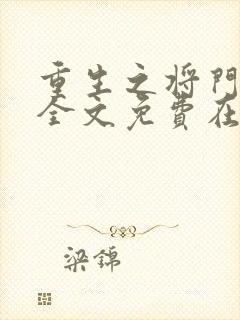 重生之将门
全文免費在
梁錦